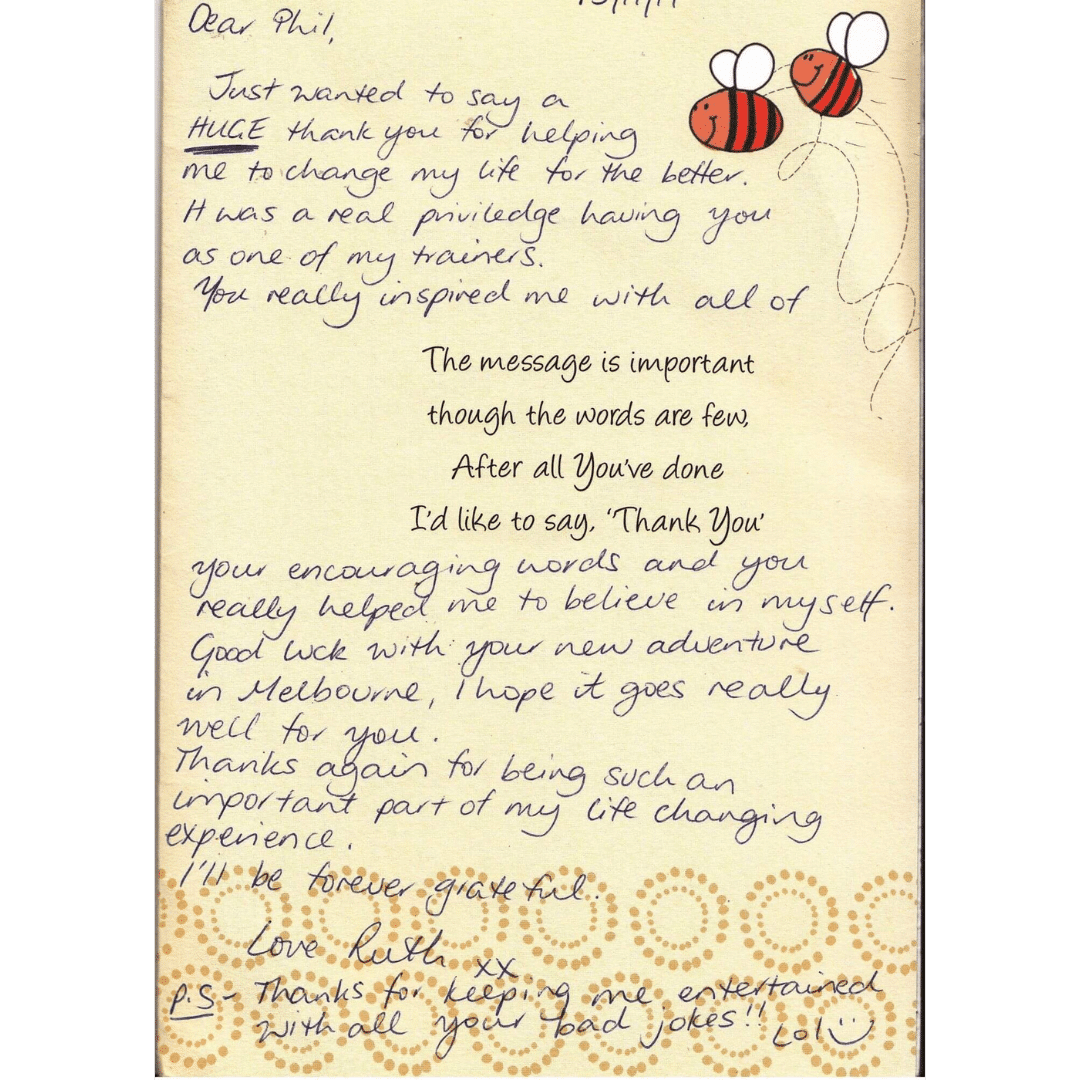 Dear Phil,
Just wanted to say a
HUGE thank you for helping
me to change my life for the better.
It was a real priviledge having you
as one of my trainers.
You really inspired me with all of
The message is important
though the words are few,
After all You've done
I'd like to say, 'Thank You'
your encouraging words and you
really helped me to believe in myself.
Good luck with your new adventure
in Melbourne, I hope it goes really
well for you.
Thanks again for being such an
important part of my life changing
experience.
I'll be forever grateful.
Love Ruth
xx
P.S - Thanks for keeping me entertained
with all your bad jokes!! Lol